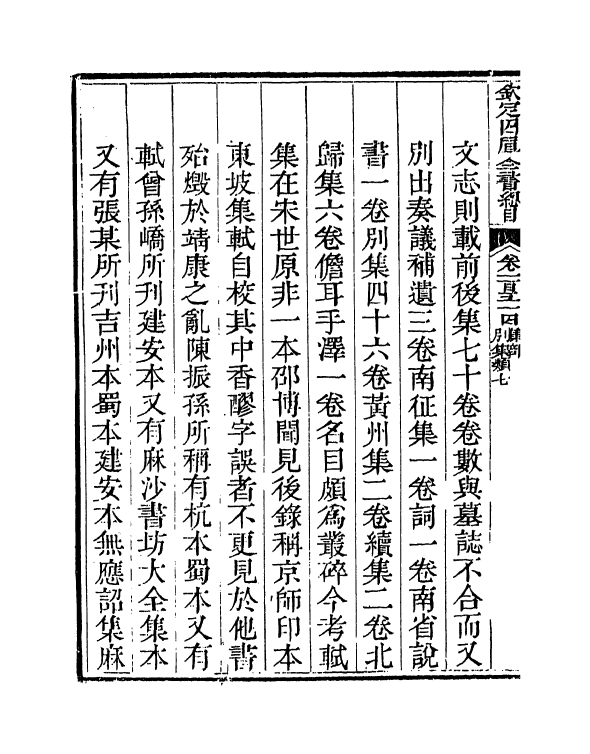 欽定四庫全書總目 卷一百五十四 集部 別集類七
文志則載前後集七十卷卷數與墓誌不合而又
別出奏議補遺三卷南征集一卷詞一卷南省說
書一卷別集四十六卷黃州集二卷續集二卷北
歸集六卷儋耳手澤一卷名目頗為叢碎今考軾
集在宋世原非一本邵博聞見後錄稱京師印本
東坡集軾自校其中香醪字誤者不更見於他書
殆燬於靖康之亂陳振孫所稱有杭本蜀本又有
軾曾孫嶠所刊建安本又有麻沙書坊大全集本
又有張某所刊吉州本蜀本建安本無應詔集麻